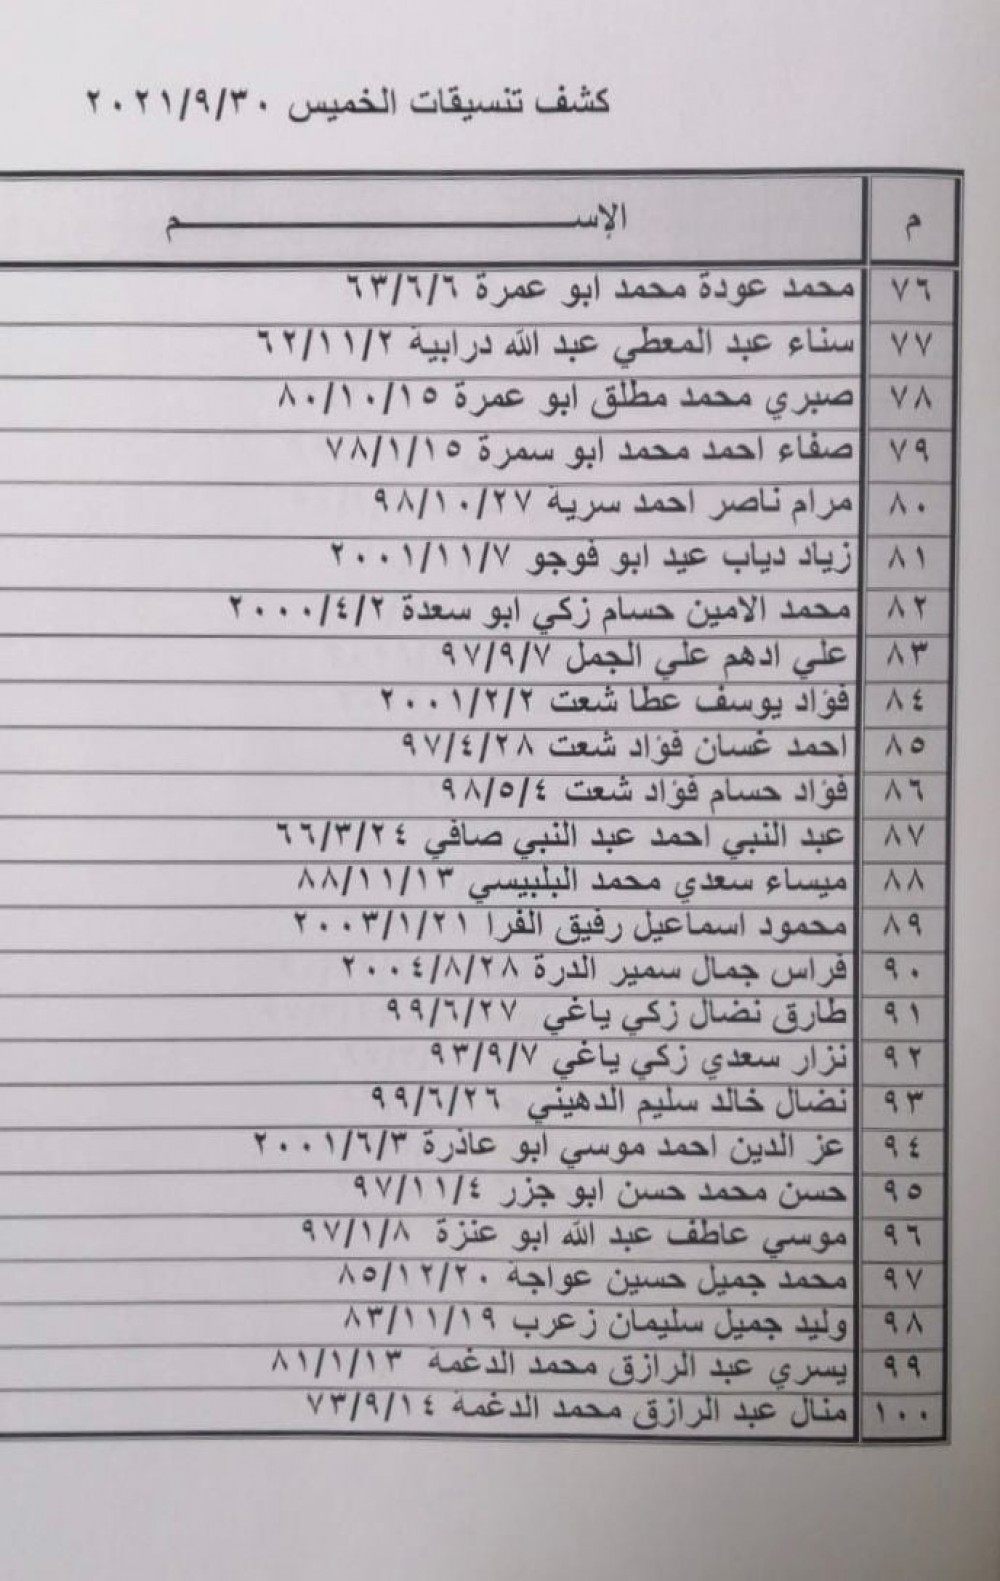 كشف تنسيقات الخميس ٢٠٢١/٩/٣٠
م الإســـــــــــــــــــــم
٧٦ محمد عودة محمد ابو عمرة ٦٣/٦/٦
٧٧ سناء عبد المعطي عبد الله درابية ٦٢/١١/٢
٧٨ صبري محمد مطلق ابو عمرة ٨٠/١٠/١٥
٧٩ صفاء احمد محمد ابو سمرة ٧٨/١/١٥
٨٠ مرام ناصر احمد سرية ٩٨/١٠/٢٧
٨١ زياد دياب عيد ابو فوجو ٢٠٠١/١١/٧
٨٢ محمد الامين حسام زكي ابو سعدة ٢٠٠٠/٤/٢
٨٣ علي ادهم علي الجمل ٩٧/٩/٧
٨٤ فؤاد يوسف عطا شعت ٢٠٠١/٢/٢
٨٥ احمد غسان فؤاد شعت ٩٧/٤/٢٨
٨٦ فؤاد حسام فؤاد شعت ٩٨/٥/٤
٨٧ عبد النبي احمد عبد النبي صافي ٦٦/٣/٢٤
٨٨ ميساء سعدي محمد البلبيسي ٨٨/١١/١٣
٨٩ محمود اسماعيل رفيق الفرا ٢٠٠٣/١/٢١
٩٠ فراس جمال سمير الدرة ٢٠٠٤/٨/٢٨
٩١ طارق نضال زكي ياغي ٩٩/٦/٢٧
٩٢ نزار سعدي زكي ياغي ٩٣/٩/٧
٩٣ نضال خالد سليم الدهيني ٩٩/٦/٢٦
٩٤ عز الدين احمد موسي ابو عاذرة ٢٠٠١/٦/٣
٩٥ حسن محمد حسن ابو جزر ٩٧/١١/٤
٩٦ موسي عاطف عبد الله ابو عنزة ٩٧/١/٨
٩٧ محمد جميل حسين عواجة ٨٥/١٢/٢٠
٩٨ وليد جميل سليمان زعرب ٨٣/١١/١٩
٩٩ يسري عبد الرازق محمد الدغمة ٨١/١/١٣
١٠٠ منال عبد الرازق محمد الدغمة ٧٣/٩/١٤